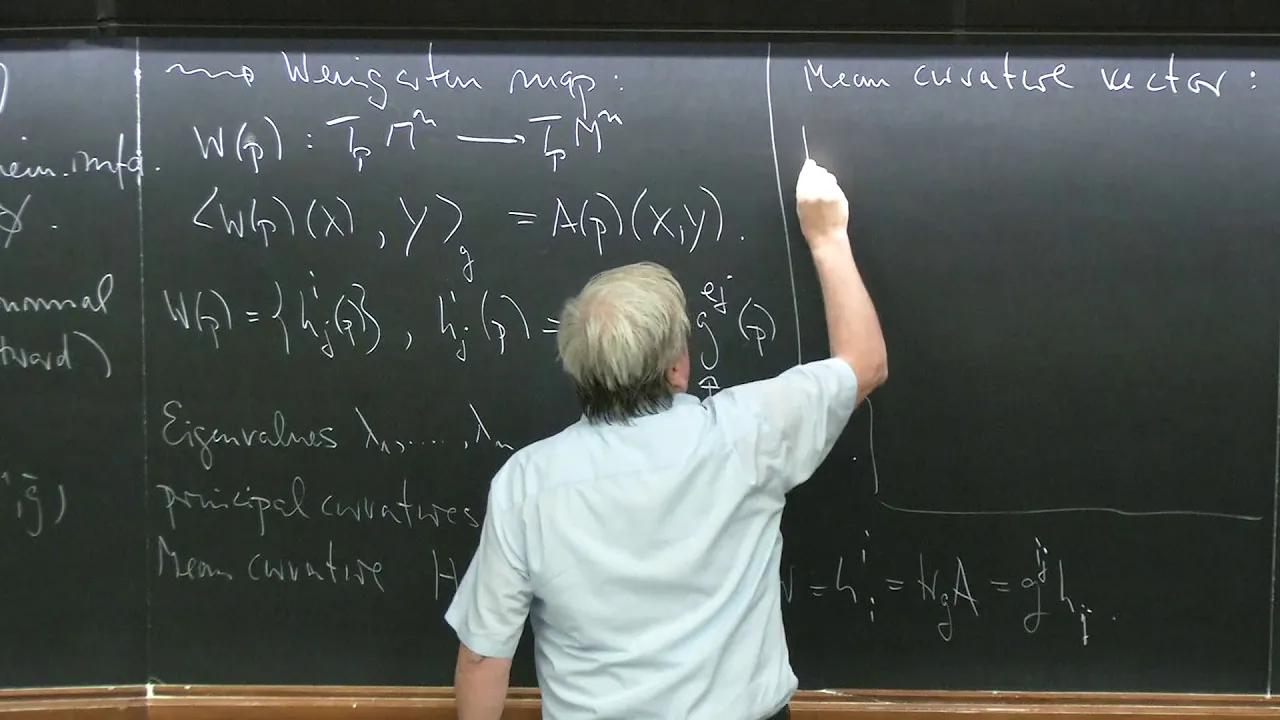 )
iem. mfd.
γ .
normal
tward)
, g̅)
⇝ Weingarten map:
W(p) : T_p M^n → T_p M^n
<W(p)(X), Y>_g = A(p)(X,Y).
W(p) = {h^i_j(p)}, h^i_j(p) = g^{ej}(p)
Eigenvalues λ_1, ...., λ_n
principal curvatures
Mean curvature H = h^i_i = tr_g A = g^{ij} h_{ij}.
Mean curvature vector: